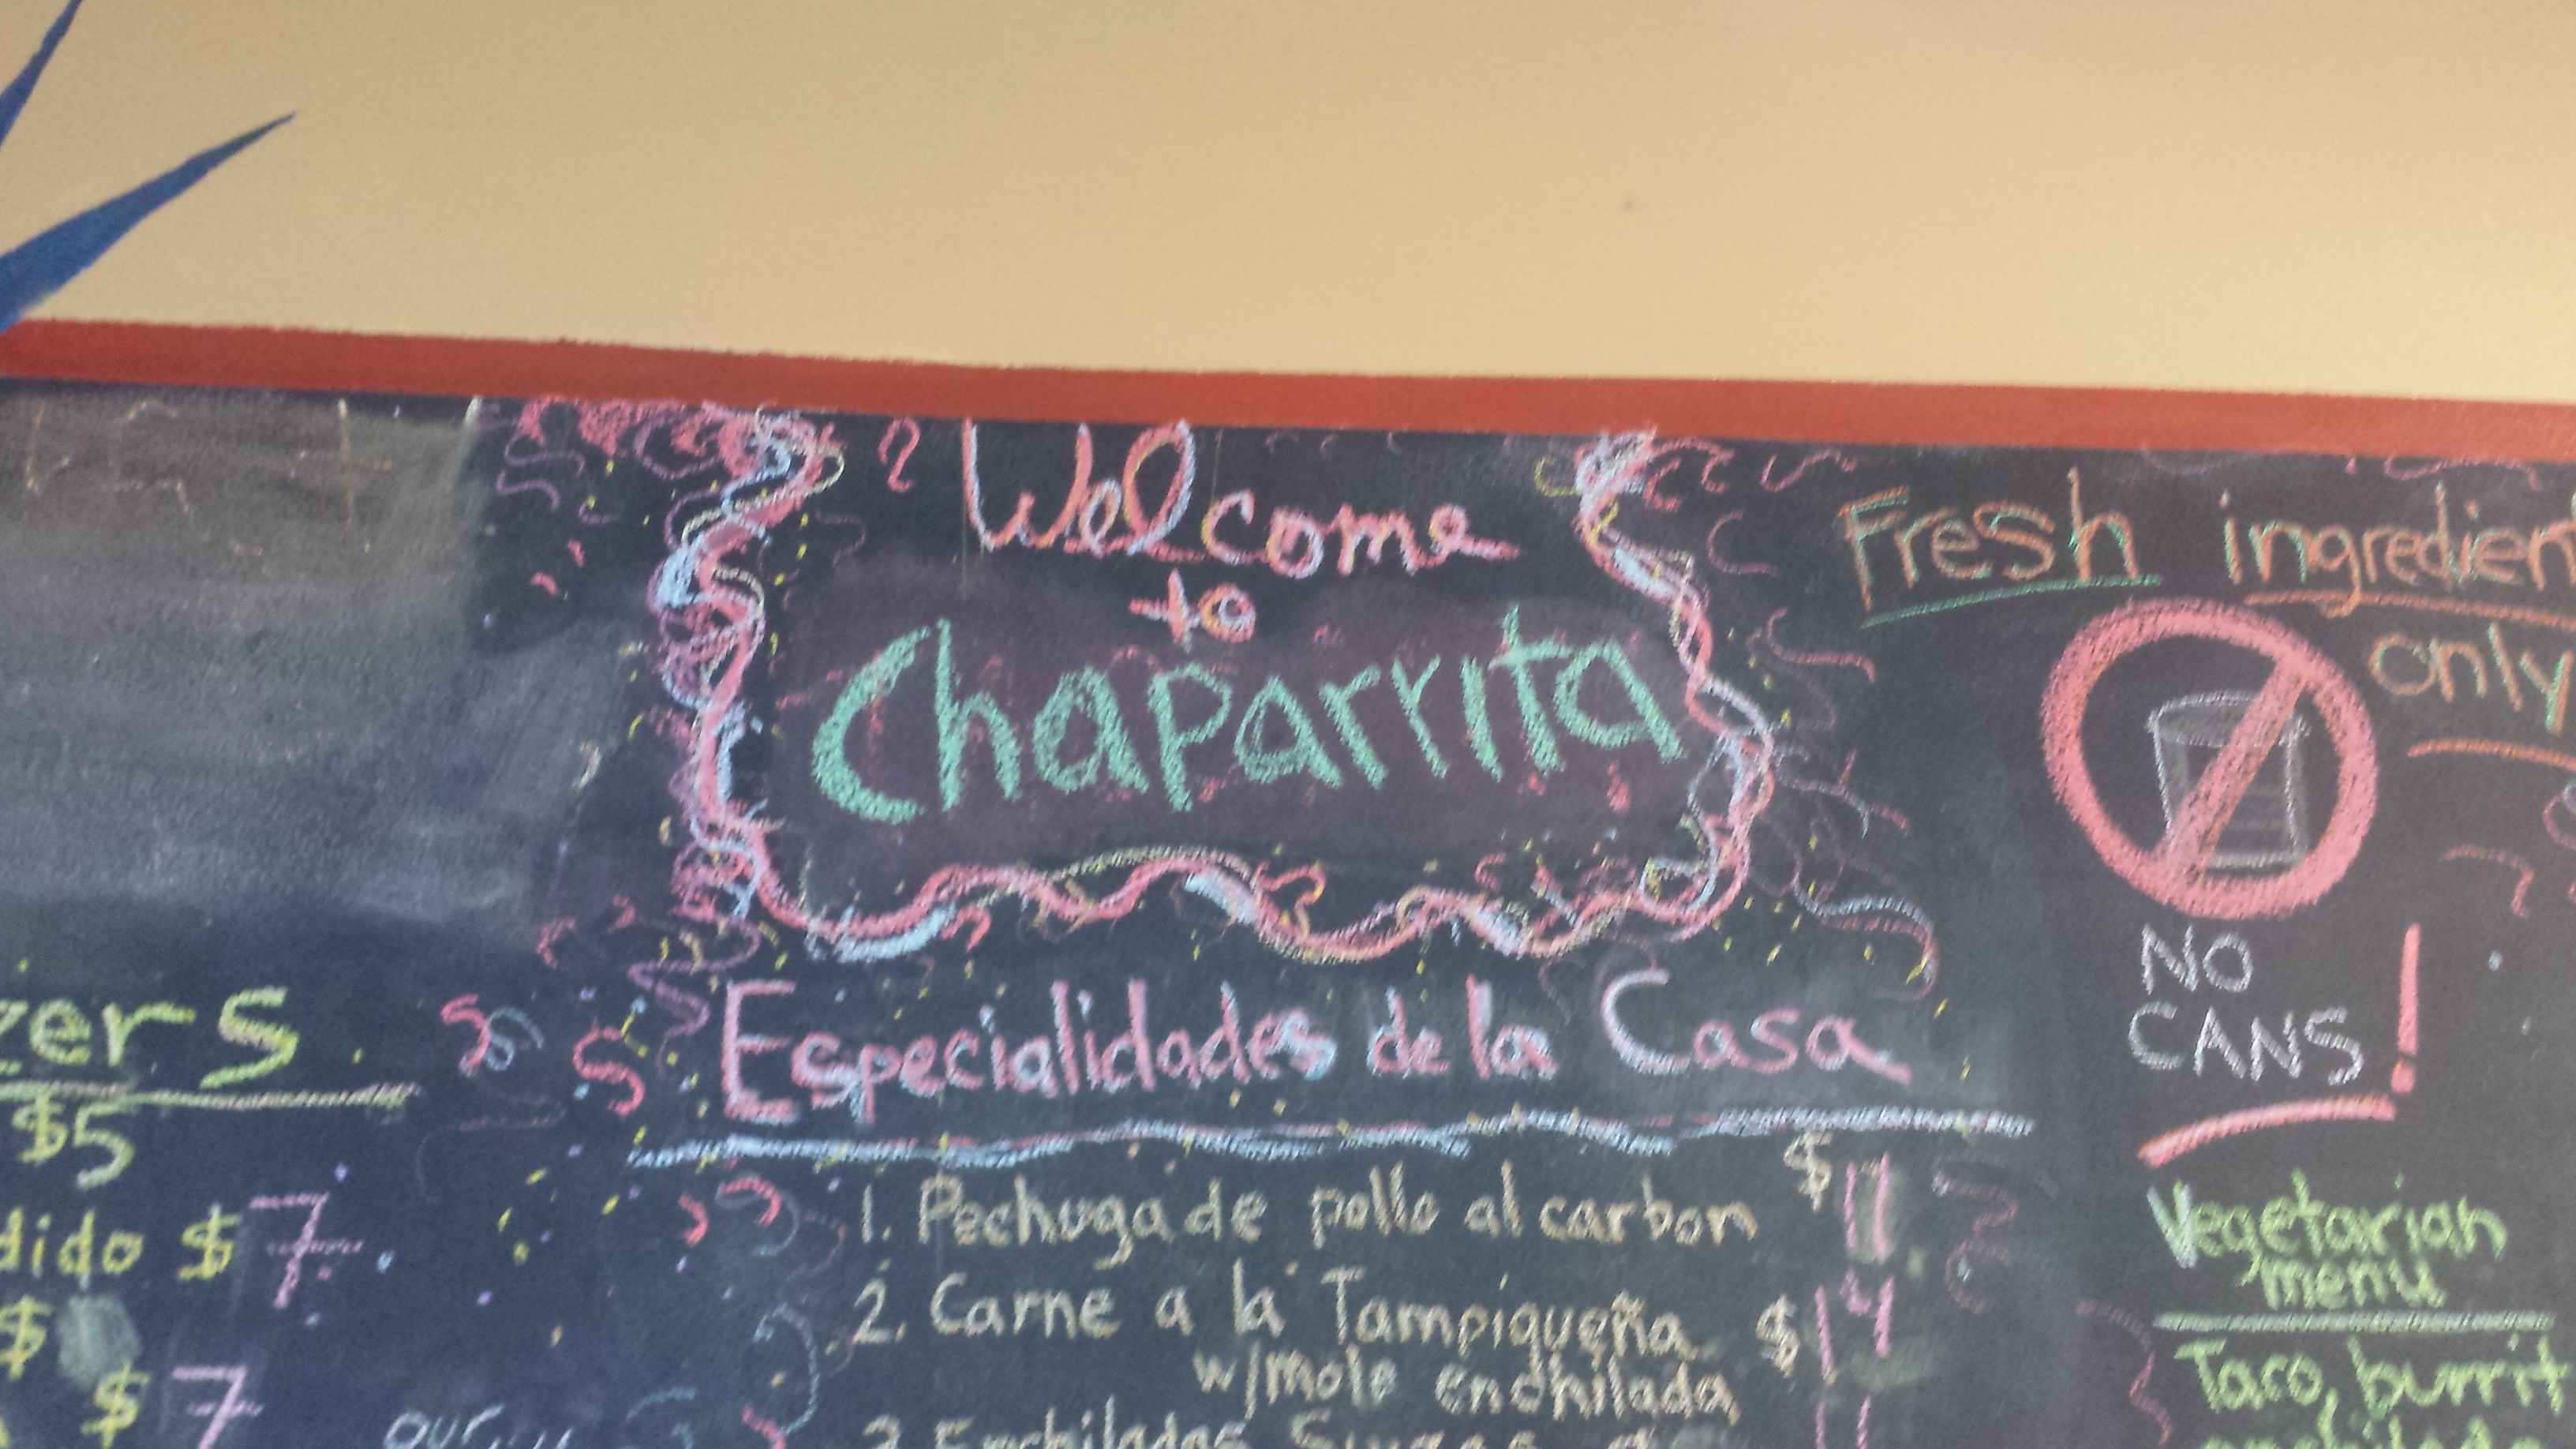 Welcome
to
Chaparrita
Especialidades de la Casa
1. Pechuga de pollo al carbon $11
2. Carne a la Tampiqueña $14
w/mole enchilada
3. Enchiladas Suizas
zers
$5
dido $7
$
$7
our
Fresh ingredien
only
NO
CANS!
Vegetarian
menu
Taco, burrit